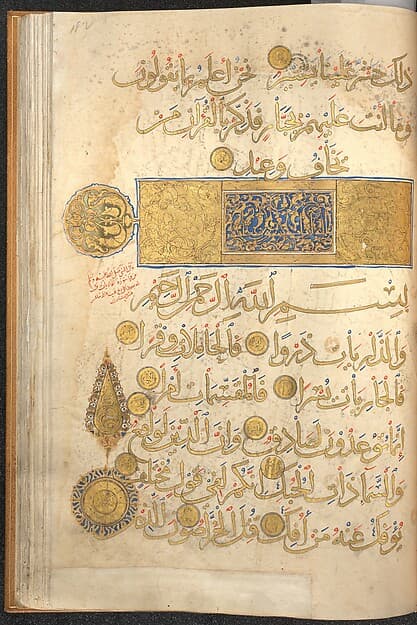 ذلك حشر علينا يسير نحن اعلم بما يقولون
وما انت عليهم بجبار فذكر بالقران من
يخاف وعيد
بسم الله الرحمن الرحيم
والذاريات ذروا فالحاملات وقرا
فالجاريات يسرا فالمقسمات امرا
انما توعدون لصادق وان الدين لواقع
والسماء ذات الحبك انكم لفي قول مختلف
يؤفك عنه من افك قتل الخراصون الذين